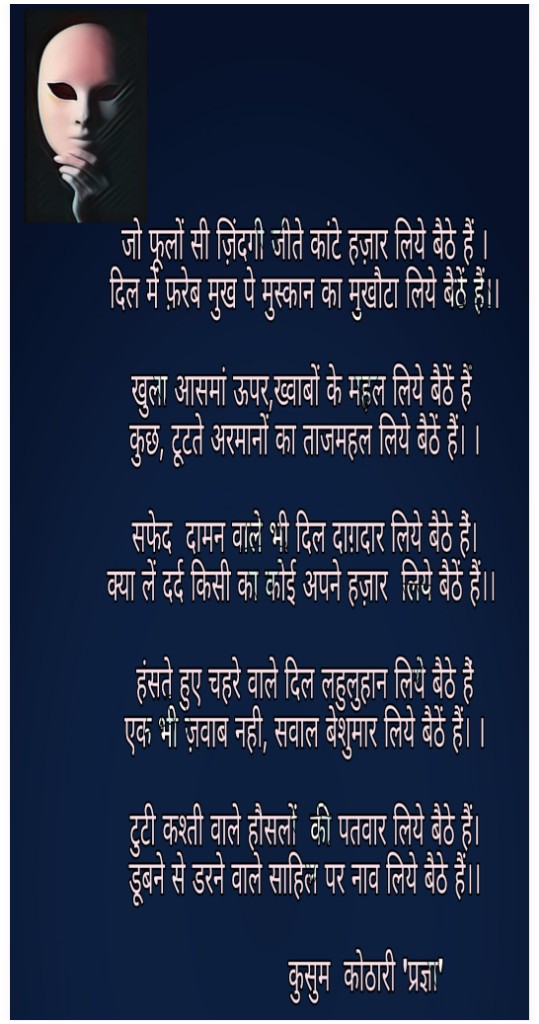 जो फूलों सी ज़िंदगी जीते कांटे हज़ार लिये बैठे हैं ।
दिल में फ़रेब मुख पे मुस्कान का मुखौटा लिये बैठें हैं।।
खुला आसमां ऊपर,ख्वाबों के महल लिये बैठें हैं
कुछ, टूटते अरमानों का ताजमहल लिये बैठें हैं। ।
सफेद दामन वाले भी दिल दाग़दार लिये बैठे हैं।
क्या लें दर्द किसी का कोई अपने हज़ार लिये बैठें हैं।।
हंसते हुए चहरे वाले दिल लहुलुहान लिये बैठे हैं
एक भी ज़वाब नही, सवाल बेशुमार लिये बैठें हैं। ।
टुटी कश्ती वाले हौसलों की पतवार लिये बैठे हैं।
डूबने से डरने वाले साहिल पर नाव लिये बैठे हैं।।
कुसुम कोठारी 'प्रज्ञा'